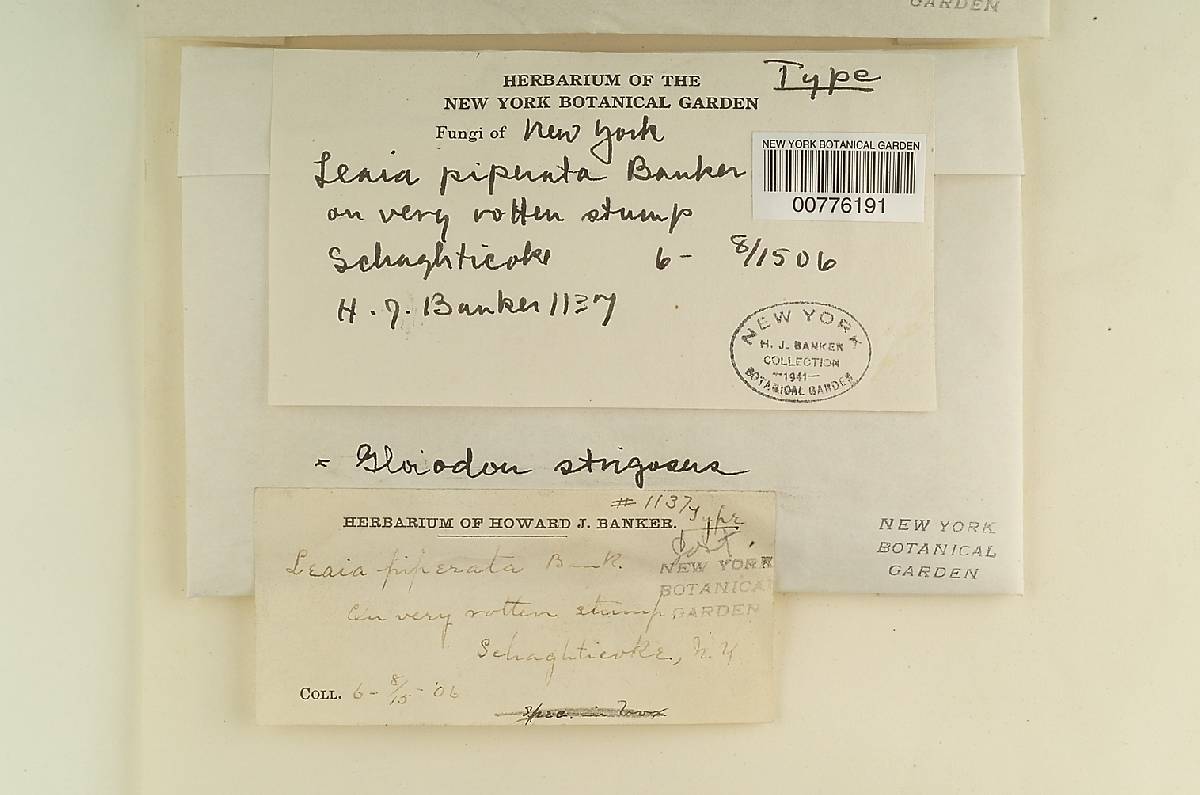 GARDEN
HERBARIUM OF THE
NEW YORK BOTANICAL GARDEN
Type
Fungi of New York
NEW YORK BOTANICAL GARDEN
00776191
Leaia piperata Banker
on very rotten stump
Schaghticoke 6- 8/15 06
H. J. Banker 1137
NEW YORK
H. J. BANKER
COLLECTION
—1941—
BOTANICAL GARDEN
= Gloiodon strigosus
# 1137
HERBARIUM OF HOWARD J. BANKER.
Type
Leaia piperata B—k.
On very rotten stump
Schaghticoke, N.Y.
COLL. 6- 8/15 - 06
Spec. in
NEW YORK
BOTANICAL
GARDEN
NEW YORK
BOTANICAL
GARDEN